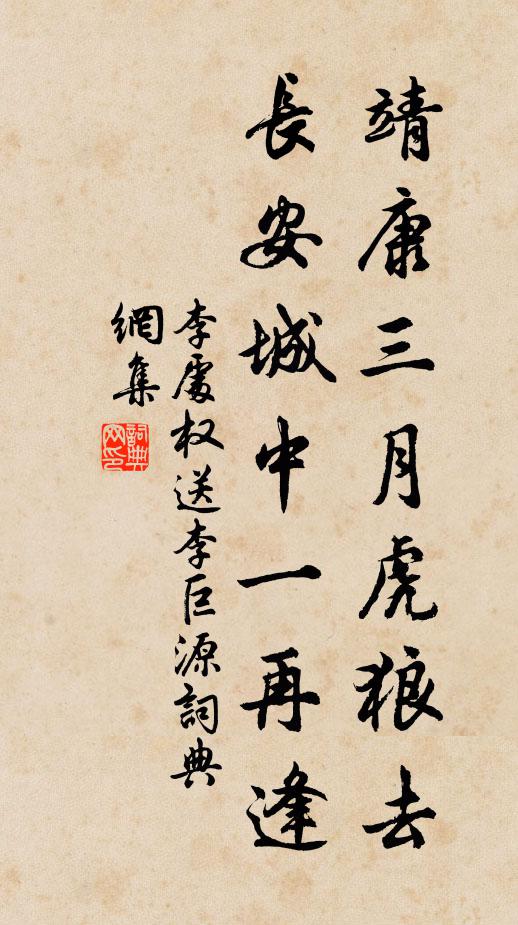 靖康三月虎狼去
長安城中一再逢
李處权送李巨源詞典
網集
詞典
网印